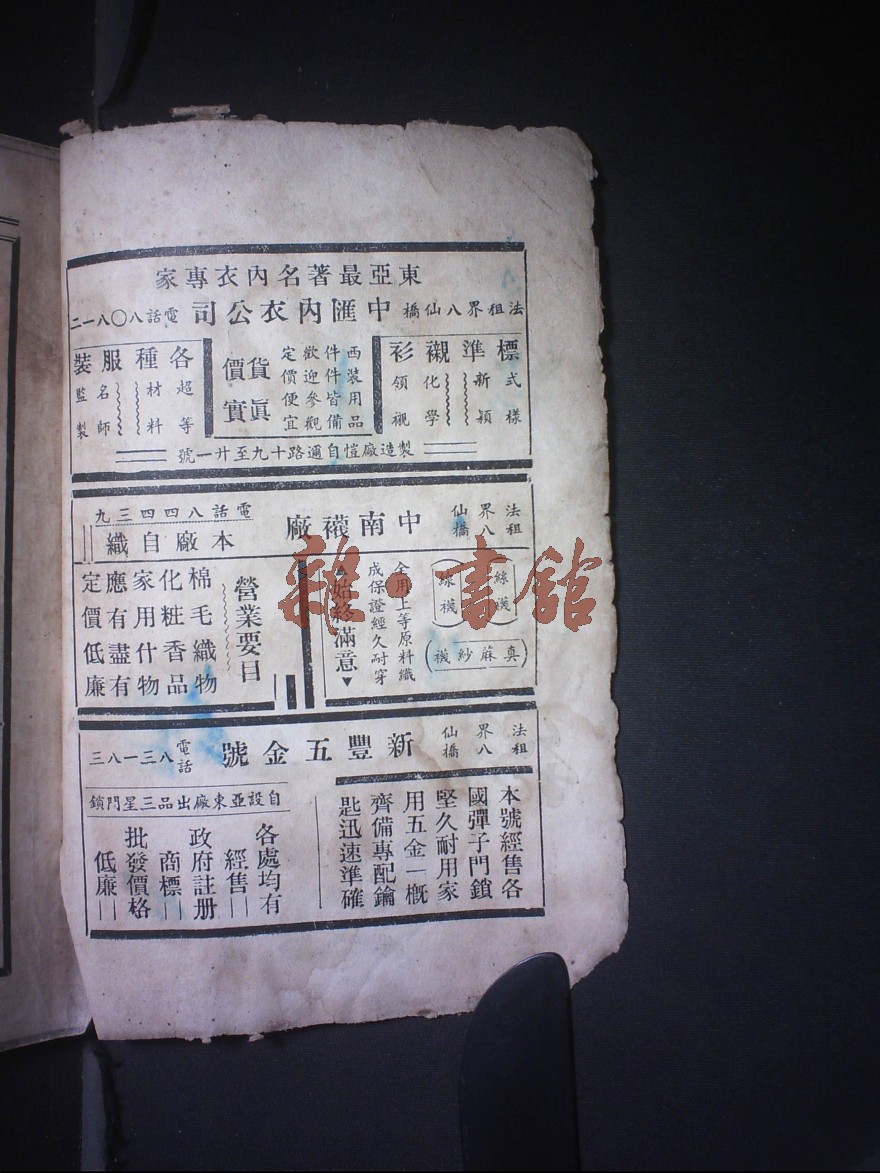 東亞最著名內衣專家
法租界八仙橋
中匯內衣公司
電話八〇八一二
標準襯衫
式樣
新穎
化學
領襯
西裝用品
件件皆備
歡迎參觀
定價便宜
貨真
價實
各種服裝
超等
材料
名師
監製
製造廠愷自邇路十九至廿一號
法租界八仙橋
中南襪廠
電話八四四三九
本廠自織
絲襪
線襪
真麻紗襪
全用上等原料織
成保證經久耐穿
▲始終滿意▼
營業要目
棉毛織物
化粧香品
家用什物
應有盡有
定價低廉
法租界八仙橋
新豐五金號
電話八三一八三
本號經售各
國彈子門鎖
堅久耐用家
用五金一概
齊備專配鑰
匙迅速準確
自設亞東廠出品三星門鎖
各處均有
經售
政府註册
商標
批發價格
低廉
雜·書館